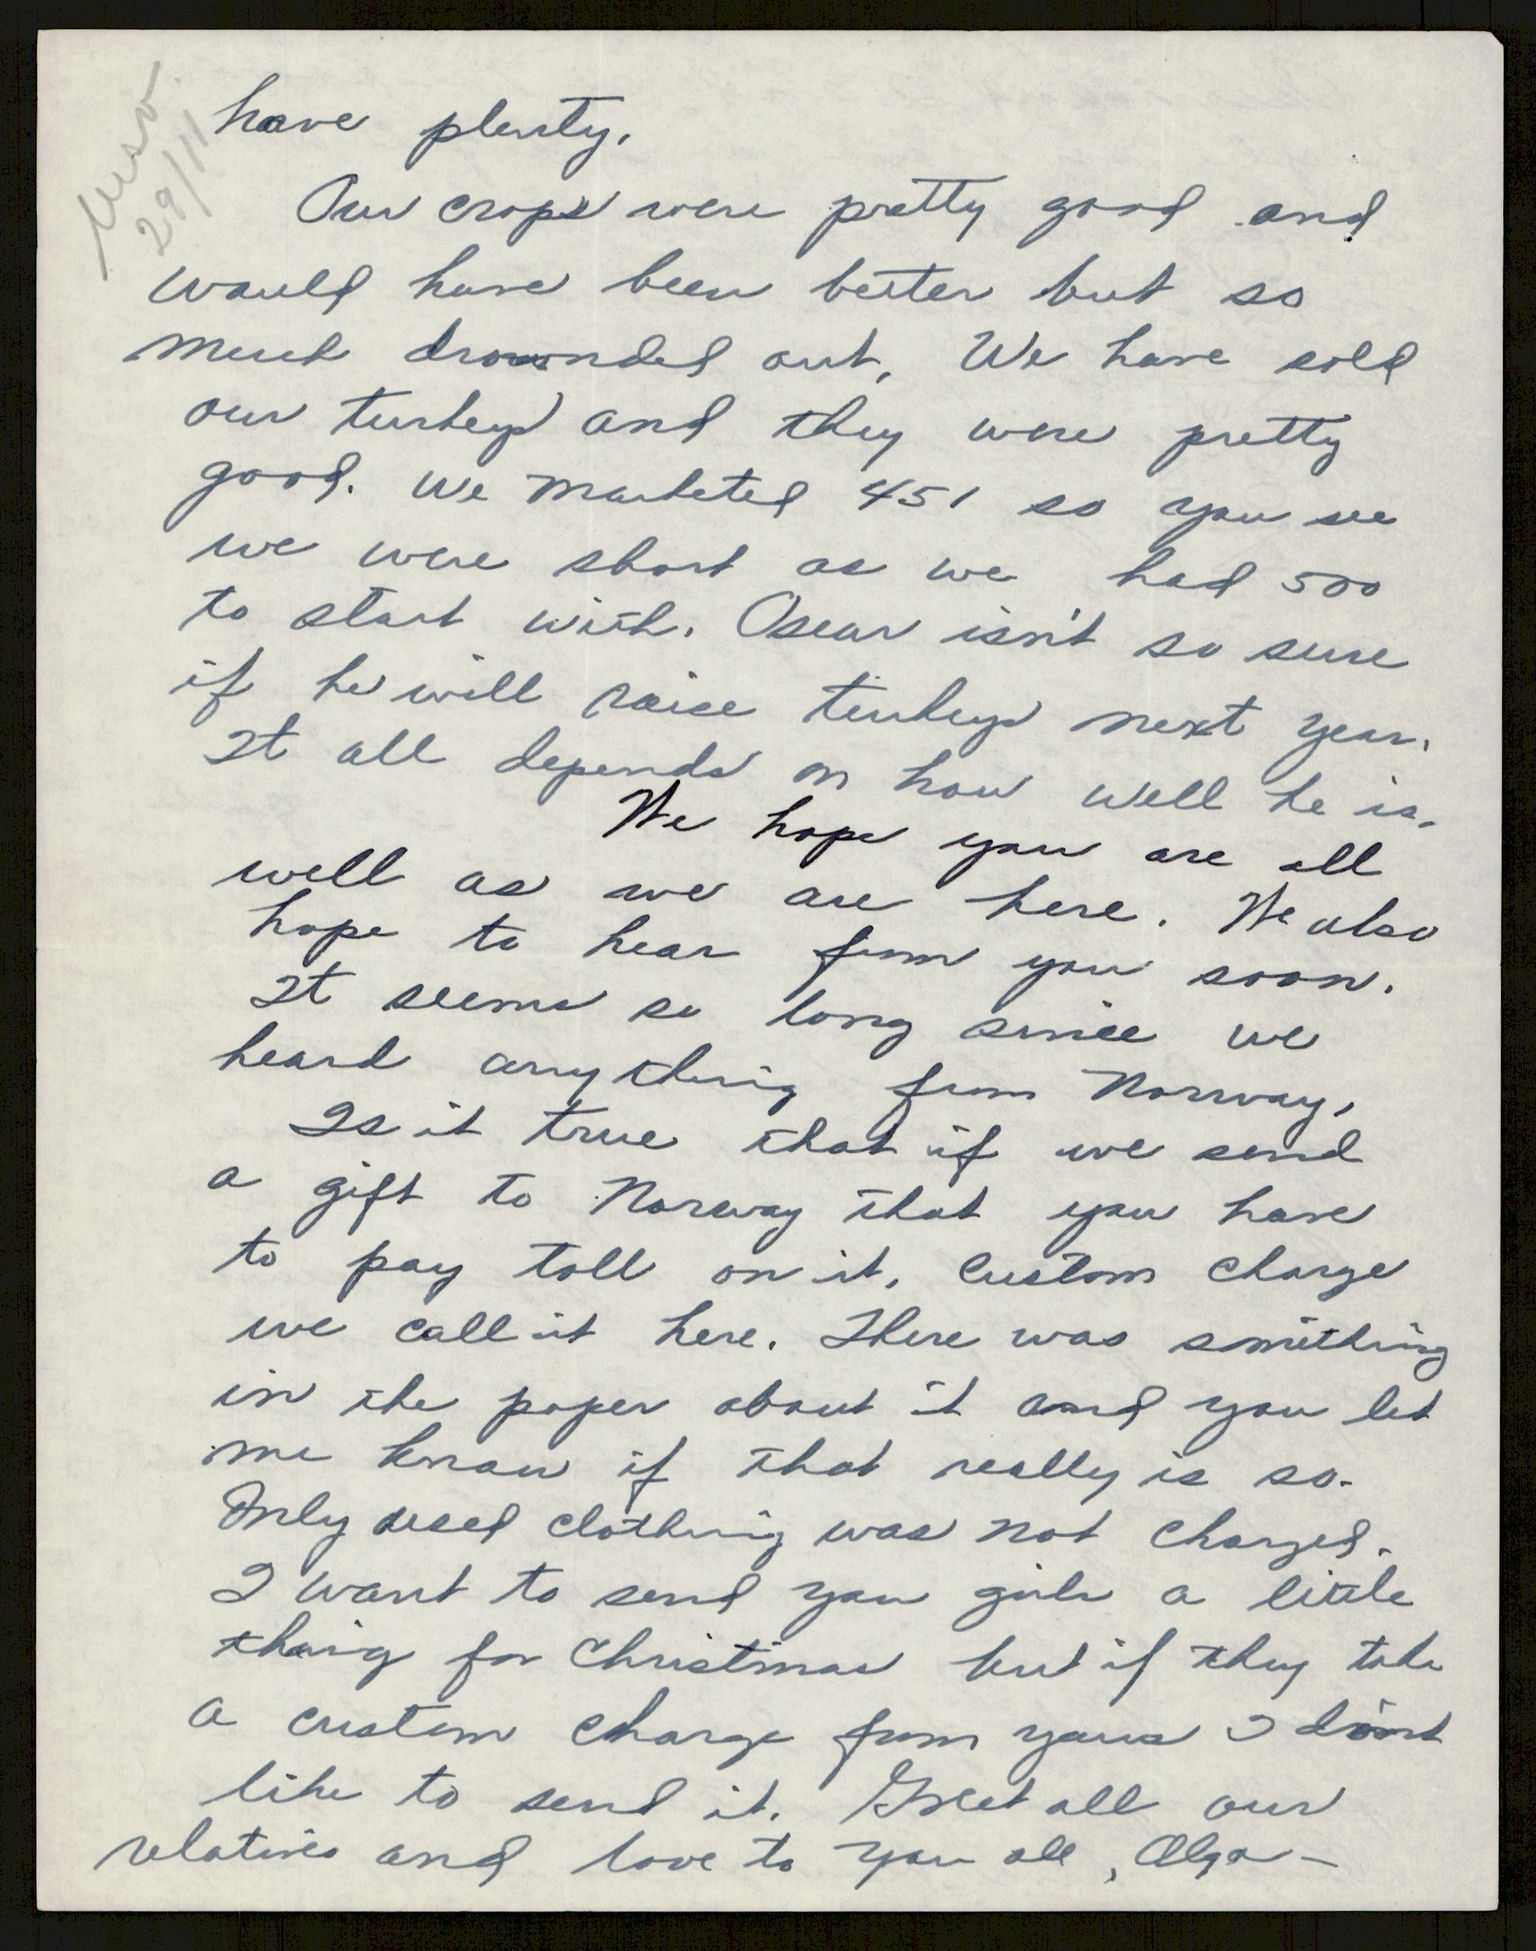 29/11
have plenty.
Our crops were pretty good and
would have been better but so
much drownded out. We have sold
our turkeys and they were pretty
good. We marketed 451 so you see
we were short as we had 500
to start with. Oscar isn't so sure
if he will raise turkeys next year.
It all depends on how well he is.
We hope you are all
well as we are here. We also
hope to hear from you soon.
It seems so long since we
heard anything from Norway.
Is it true that if we send
a gift to Norway that you have
to pay toll on it. Custom charge
we call it here. There was something
in the paper about it and you let
me know if that really is so.
Only used clothing was not charged.
I want to send you girls a little
thing for Christmas but if they take
a custom charge from yous I don't
like to send it. Greet all our
relatives and love to you all, Olga -